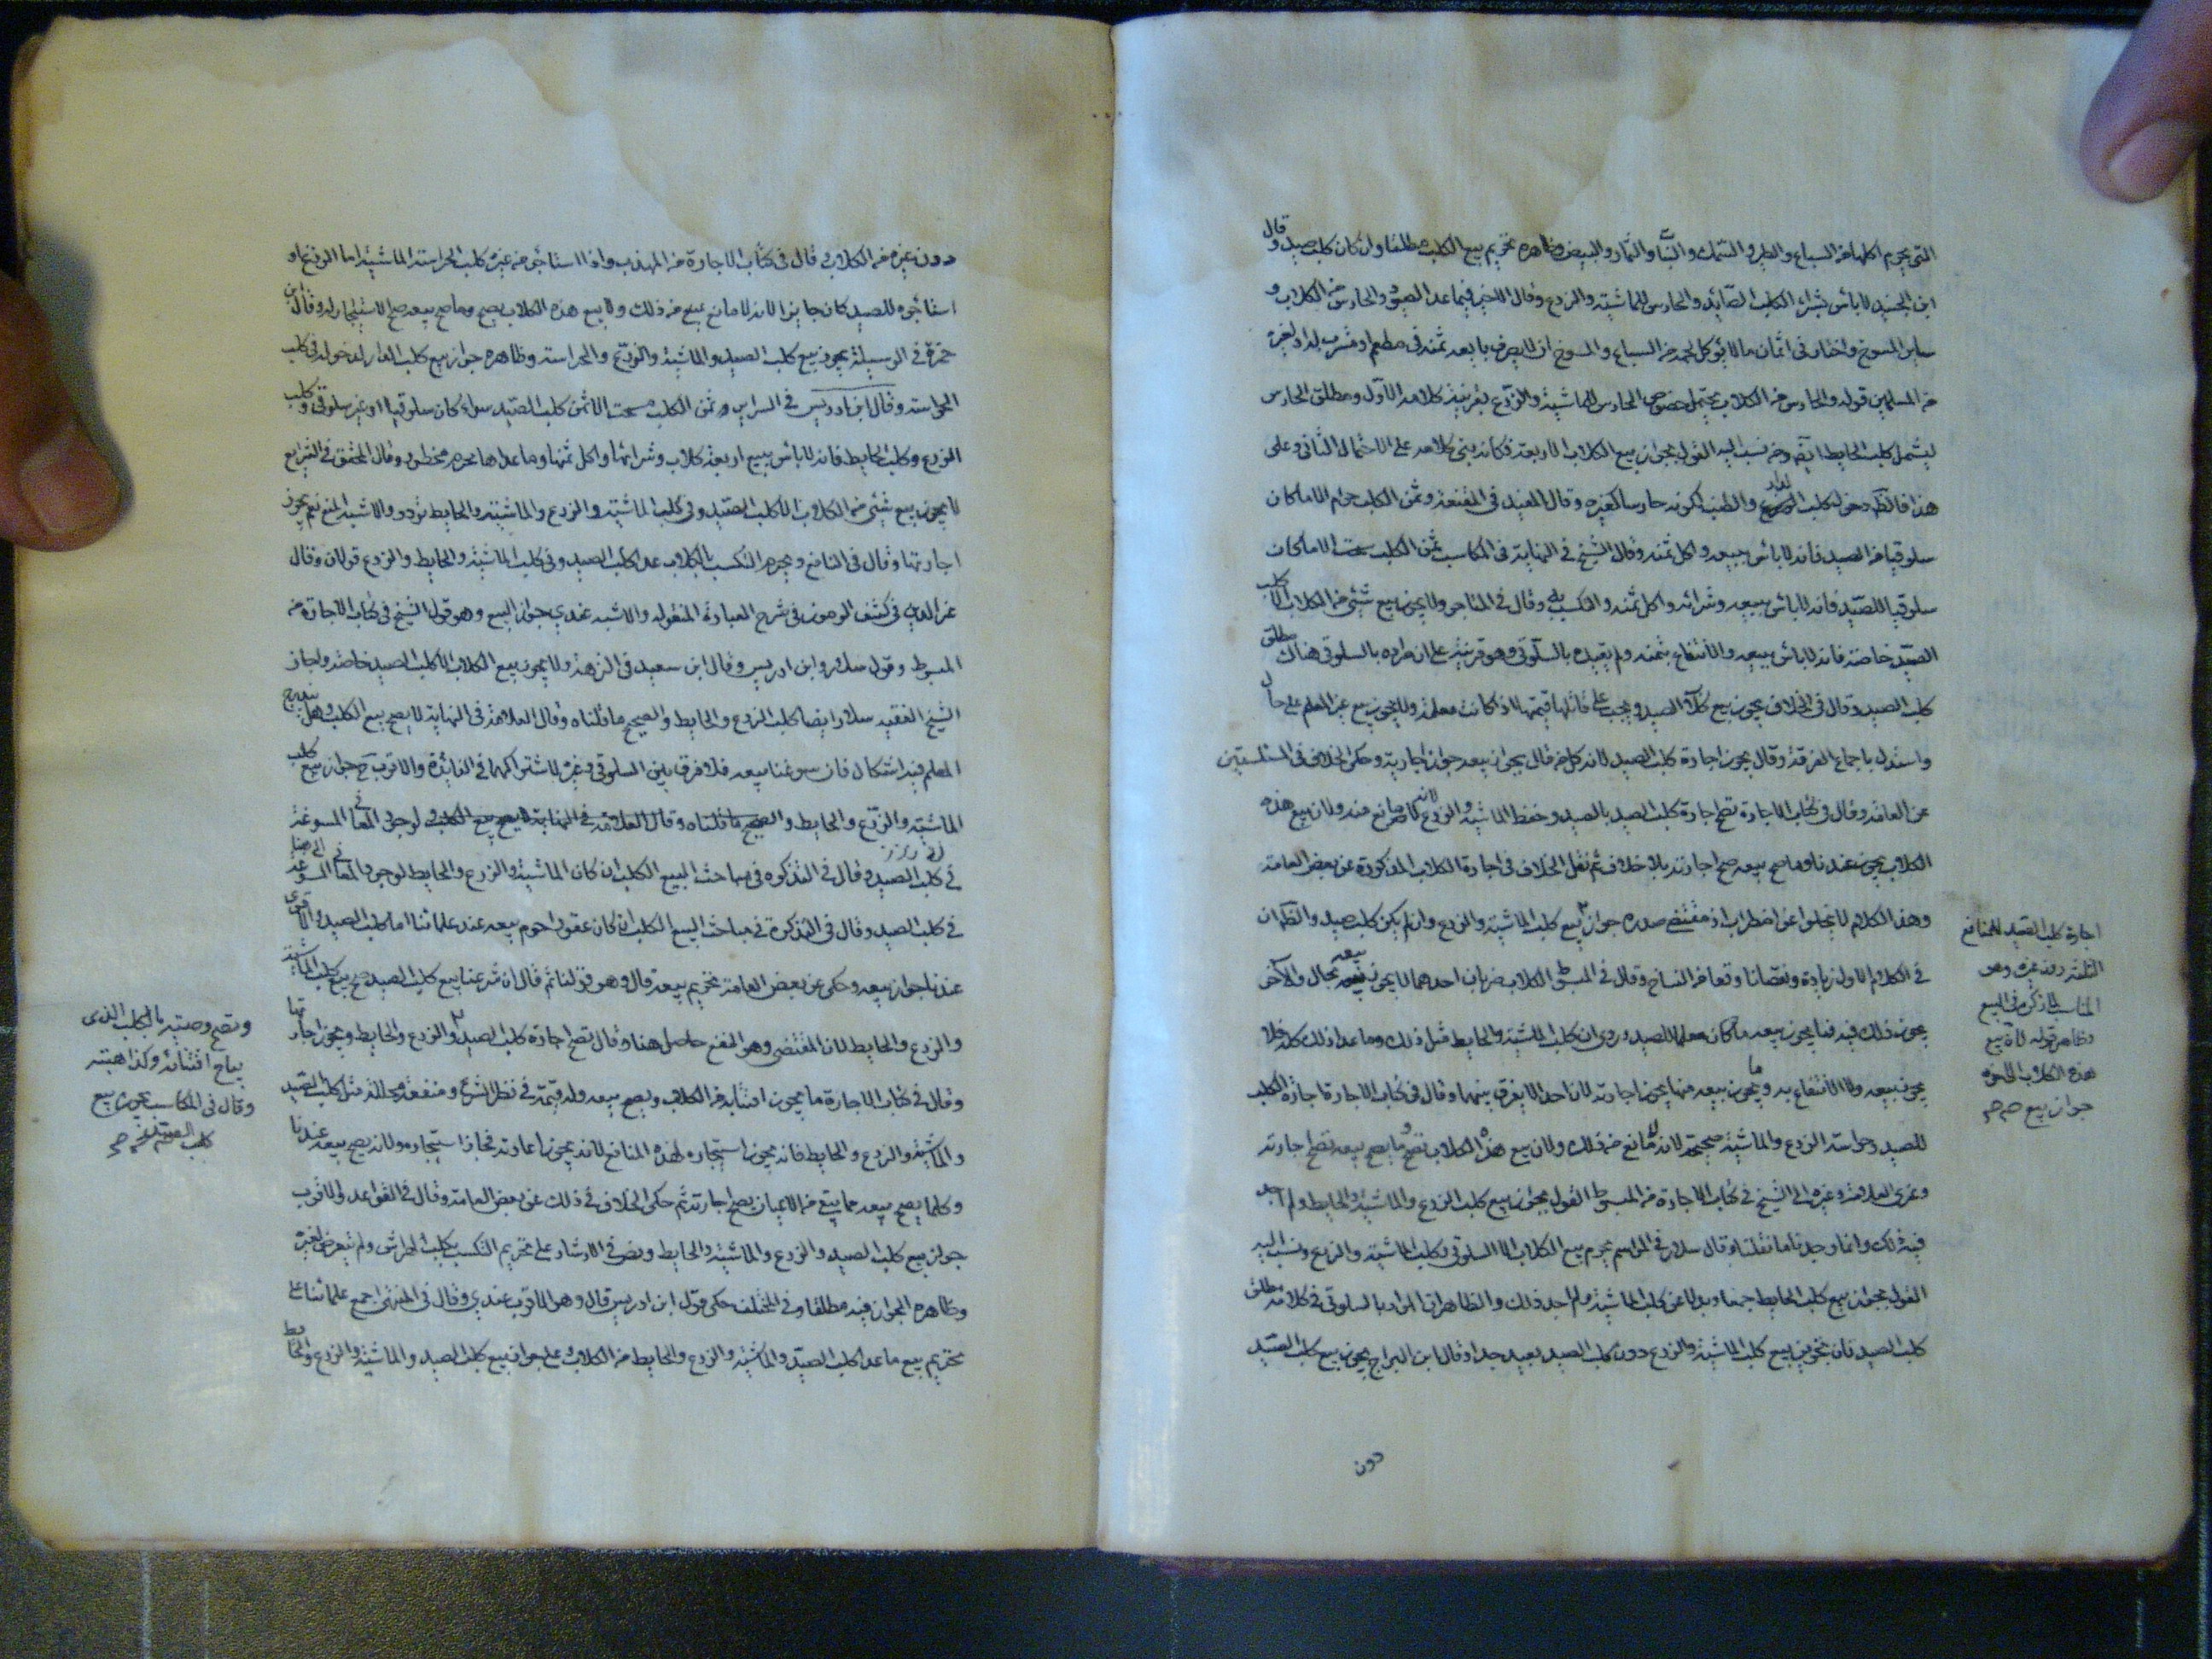 التى يحرم اكلها من السباع والطير والسمك والنبات والثمار والبيض وظاهره تحريم بيع الكلب مطلقا وان كان كلب صيد وقال
ابن الجنيد لا بأس بشراء الكلب الصائد والحارس للماشية والزرع وقال لا خير فيما عدا الصيود والحارس من الكلاب و
ساير المسوخ واختار فى اثمان ما لا يؤكل لحمه من السباع والمسوخ ان لا يصرف بايعه ثمنه فى مطعم او مشرب له او لغيره
من المسلمين قوله والحارس من الكلاب يحتمل خصوص الحارس للماشية والزرع بقرينة كلامه الاول ومطلق الحارس
ليشمل كلب الحايط ايضا ومن نسب اليه القول بجواز بيع الكلاب الاربعة فكانه بنى كلامه على الاحتمال الثانى وعلى
هذا فالظ دخول كلب الدار والظئب لكونه حارسا كغيره وقال المفيد فى المقنعة وثمن الكلب حرام الا ما كان
سلوقيا من الصيد فانه لا بأس ببيعه واكل ثمنه وقال الشيخ فى النهاية فى المكاسب ثمن الكلب سحت الا ما كان
سلوقيا للصيد فانه لا بأس ببيعه وشرائه واكل ثمنه والتكسب به وقال فى المتاجر ولا يجوز بيع شيئى من الكلاب الا كلب
الصيد خاصة فانه لا بأس ببيعه والانتفاع بثمنه ولم يقيده بالسلوقى وهو قرينة على ان مراده بالسلوقى هناك مطلق
كلب الصيد وقال فى الخلاف يجوز بيع كلاب الصيد ويجب على قاتلها قيمتها اذا كانت معلمة ولا يجوز بيع غير المعلم على حال
واستدل باجماع الفرقة وقال يجوز اجارة كلب الصيد لان كل من قال يجواز بيعه جواز اجارته وحكى الخلاف فى المسئلتين
عن العامة وقال فى كتاب الاجارة تصح اجارة كلب الصيد بالصيد وحفظ الماشية والزرع لانه لا مانع منه ولان بيع هذه
الكلاب يجوز عندنا وما صح بيعه صح اجارته بلا خلاف ثم نقل الخلاف فى اجارة الكلاب المذكورة عن بعض العامة
وهذا الكلام لا يخلوا عن اضطراب اذ مقتضى صدره جواز بيع كلب الماشية والزرع وان لم يكن كلب صيد والظ ان
فى الكلام الاول زيادة ونقصانا وقعا من النساخ وقال فى المبسوط الكلاب ضربان احدهما لا يجوز بيعه بحال والآخر
يجوز ذلك فيه فما يجوز بيعه ما كان معلما للصيد وروى ان كلب الماشية والحايط مثل ذلك وما عدا ذلك كله فلا
يجوز بيعه ولا الانتفاع به وما يجوز بيعه منها يجوز اجارته لان احدا لا يفرق بينهما وقال فى كتاب الاجارة اجازة الكلب
للصيد وحراسة الزرع والماشية صحيحة لانه لا مانع من ذلك ولان بيع هذه الكلاب تصح وما يصح بيعه تصح اجارته
وعزى العلامة وغيره الى الشيخ فى كتاب الاجارة من المبسوط القول بجواز بيع كلب الزرع والماشية والحايط ولم اجد
فيه ذلك وانما وجدنا ما نقلناه وقال سلار فى المراسم يحرم بيع الكلاب الا السلوقى وكلب الماشية والزرع ونسب اليه
القول بجواز بيع كلب الحايط جمعا وبدلا عن كلب الماشية ولم اجد ذلك والظاهر ان المراد بالسلوقى فى كلامه مطلق
كلب الصيد فان تجويز بيع كلب الماشية والزرع دون كلب الصيد بعيد جدا وقال ابن البراج يجوز بيع كلب الصيد
دون
اجارة كلب الصيد للمنافع
الثلثة دون غيره وهو
المناسب لما ذكره فى البيع
وظاهر قوله لان بيع
هذه الكلاب الخ
جواز بيع
دون غيره من الكلاب وقال فى كتاب الاجارة من المهذب واذا استاجر من غيره كلب الحراسة الماشية اما الزرع او
استاجره للصيد كان جايزا لانه لا مانع يمنع من ذلك ولا بيع هذه الكلاب يصح وما صح بيعه صح الاستيجار له وقال ابن
حمزة فى الوسيلة يجوز بيع كلب الصيد والماشية والزرع والحراسة وظاهره جواز بيع كلب الدار لدخوله فى كلب
الحراسة وقال ابن ادريس فى السراير وثمن الكلب سحت الا ثمن كلب الصيد سواء كان سلوقيا او غير سلوقى وكلب
الزرع وكلب الحايط فانه لا بأس ببيع اربعة كلاب وشرائها واكل ثمنها وما عداها محرم محظور وقال المحقق فى الشرايع
لا يجوز بيع شيئى من الكلاب الا كلب الصيد وفى كلب الماشية والزرع والماشية والحايط تردد والاشبه المنع نعم يجوز
اجارتها وقال فى النافع ويحرم التكسب بالكلاب عدا كلب الصيد وفى كلب الماشية والحايط والزرع قولان وقال
عز الدين فى كشف الرموز فى شرح العبارة المنقولة والاشبه عندي جواز البيع وهو قول الشيخ فى كتاب الاجارة من
المبسوط وقول سلار وابن ادريس وقال ابن سعيد فى النزهة ولا يجوز بيع الكلاب الا كلب الصيد خاصة واجاز
الشيخ الفقيه سلار ايضا كلب الزرع والحايط والصحيح ما قلناه وقال العلامة فى النهاية لا يصح بيع الكلب وهل يصح بيع
المعلم فيه اشكال فان سوغنا بيعه فلا فرق بين السلوقى وغيره لاشتراكهما فى الفائدة والاقرب ح جواز بيع كلب
الماشية والزرع والحايط والصحيح ما قلناه وقال العلامة فى النهاية لا يصح بيع الكلب لوجود المعنى المسوغ
فى كلب الصيد وقال فى التذكره فى مباحث البيع الكلب ان كان الماشية والزرع والحايط لوجود المعنى المسوغ
فى كلب الصيد وقال فى التذكرة فى مباحث البيع الكلب ان كان عقورا حرم بيعه عند علمائنا اما كلب الصيد فالاقوى
عندنا جواز بيعه وحكى عن بعض العامة تحريم بيعه قال وهو قول لنا ثم قال ان شرعنا بيع كلب الصيد صح بيع كلب الماشية
والزرع والحايط لان المقتضى وهو النفع حاصل هنا وقال تصح اجارة كلب الصيد والزرع والحايط ويجوز اجارتها
وقال فى كتاب الاجارة ما يجوز اقتنائه من الكلاب ويصح بيعه وله قيمة فى نظر الشرع ومنفعة محللة مثل كلب الصيد
والماشية والزرع والحايط فانه يجوز استيجاره لهذه المنافع لانه يجوز اعارته فجاز استيجاره ولانه يصح بيعه عندنا
وكلما يصح بيعه مما يبقى من الاعيان يصح اجارته ثم حكى الخلاف فى ذلك عن بعض العامة وقال فى القواعد والاقرب
جواز بيع كلب الصيد والزرع والماشية والحايط ونص فى الارشاد على تحريم التكسب بكلب الهراش ولم يتعرض لغيره
وظاهره الجواز فيه مطلقا وفى المختلف حكى قول ابن ادريس قال وهو الاقرب عندي وقال فى المنتهى اجمع علمائنا على
تحريم بيع ما عدا كلب الصيد والماشية والزرع والحايط من الكلاب وعلى جواز بيع كلب الصيد والماشية والزرع والحايط
وتصح وصيته بالكلب الذى
يباح اقتنائه وكذا هبته
وقال فى المكاسب يجوز بيع
كلب الصيد